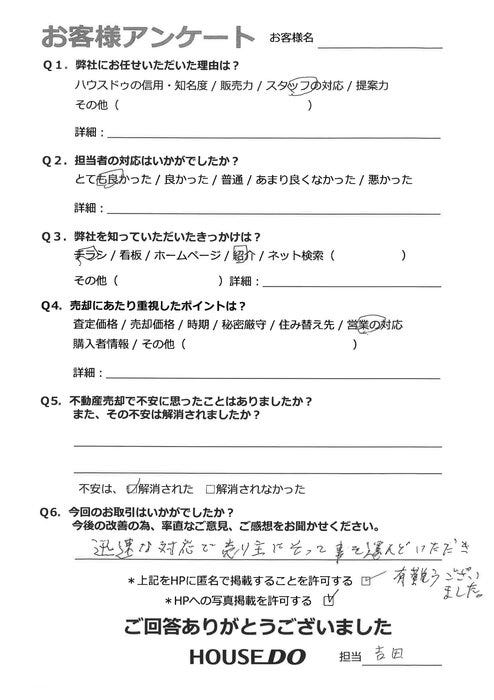 お客様アンケート お客様名
Q1. 弊社にお任せいただいた理由は?
ハウスドゥの信用・知名度 / 販売力 / スタッフの対応 / 提案力
その他 ( )
詳細:
Q2. 担当者の対応はいかがでしたか?
とても良かった / 良かった / 普通 / あまり良くなかった / 悪かった
詳細:
Q3. 弊社を知っていただいたきっかけは?
チラシ / 看板 / ホームページ / 紹介 / ネット検索 ( )
その他 ( ) 詳細:
Q4. 売却にあたり重視したポイントは?
査定価格 / 売却価格 / 時期 / 秘密厳守 / 住み替え先 / 営業の対応
購入者情報 / その他 ( )
詳細:
Q5. 不動産売却で不安に思ったことはありましたか?
また、その不安は解消されましたか?
不安は、☑解消された □解消されなかった
Q6. 今回のお取引はいかがでしたか?
今後の改善の為、率直なご意見、ご感想をお聞かせください。
迅速な対応で売り主にそって事を運んでいただき
有難うござい
ました。
*上記をHPに匿名で掲載することを許可する ☑
*HPへの写真掲載を許可する ☑
ご回答ありがとうございました
HOUSEDO 担当 吉田